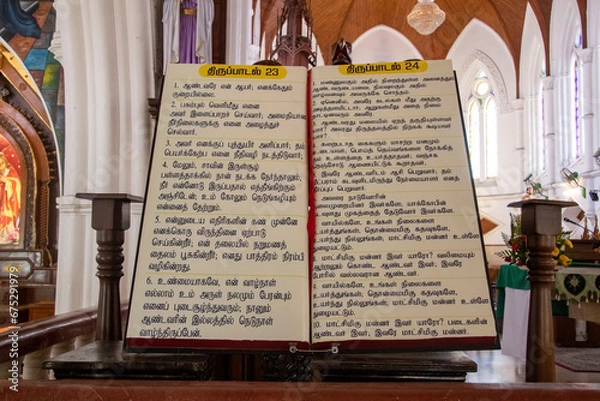 திருப்பாடல் 23
1. ஆண்டவரே என் ஆயர்; எனக்கேதும்
குறையில்லை.
2. பசும்புல் வெளிமீது எனை
அவர் இளைப்பாறச் செய்வார்; அமைதியான
நீர்நிலைகளுக்கு எனை அழைத்துச்
செல்வார்.
3. அவர் எனக்குப் புத்துயிர் அளிப்பார்; தம்
பெயர்க்கேற்ப எனை நீதிவழி நடத்திடுவார்;
4. மேலும், சாவின் இருள்சூழ்
பள்ளத்தாக்கில் நான் நடக்க நேர்ந்தாலும்,
நீர் என்னோடு இருப்பதால் எத்தீங்கிற்கும்
அஞ்சிடேன்; உம் கோலும் நெடுங்கழியும்
என்னைத் தேற்றும்.
5. என்னுடைய எதிரிகளின் கண் முன்னே
எனக்கொரு விருந்தினை ஏற்பாடு
செய்கின்றீர்; என் தலையில் நறுமணத்
தைலம் பூசுகின்றீர்; எனது பாத்திரம் நிரம்பி
வழிகின்றது.
6. உண்மையாகவே, என் வாழ்நாள்
எல்லாம் உம் அருள் நலமும் பேரன்பும்
எனைப் புடைசூழ்ந்துவரும்; நானும்
ஆண்டவரின் இல்லத்தில் நெடுநாள்
வாழ்ந்திருப்பேன்.
திருப்பாடல் 24
1. மண்ணுலகும் அதில் நிறைந்துள்ள அனைத்தும்
ஆண்டவருடையவை; நிலவுலகும் அதில்
வாழ்வனவும் அவருக்கே சொந்தம்.
2. ஏனெனில், அவரே கடல்கள் மீது அதற்கு
அடித்தளமிட்டார்; ஆறுகள்மீது அதை நிலை
நாட்டினவரும் அவரே.
3. ஆண்டவரது மலையில் ஏறத் தகுதியுள்ளவர்
யார்? அவரது திருத்தலத்தில் நிற்கக் கூடியவர்
யார்?
4. கறைபடாத கைகளும் மாசற்ற மனமும்
உடையவர்; பொய்த் தெய்வங்களை நோக்கித்
தம் உள்ளத்தை உயர்த்தாதவர்;
5. இவரே ஆண்டவரிடம் ஆசி பெறுவார்; தம்
மீட்பராம் கடவுளிடமிருந்து நேர்மையாளர் எனத்
தீர்ப்புப் பெறுவார்.
7. வாயில்களே, உங்கள் நிலைகளை
உயர்த்துங்கள்; தொன்மைமிகு கதவுகளே,
உயர்ந்து நில்லுங்கள்; மாட்சிமிகு மன்னர் உள்ளே
நுழையட்டும்.
8. மாட்சிமிகு மன்னர் இவர் யாரோ? வலிமையும்
ஆற்றலும் கொண்ட ஆண்டவர் இவர்; இவரே
போரில் வல்லவரான ஆண்டவர்.
9. வாயில்களே, உங்கள் நிலைகளை
உயர்த்துங்கள்; தொன்மைமிகு கதவுகளே,
உயர்ந்து நில்லுங்கள்; மாட்சிமிகு மன்னர் உள்ளே
நுழையட்டும்.
10. மாட்சிமிகு மன்னர் இவர் யாரோ? படைகளின்
ஆண்டவர் இவர்; இவரே மாட்சிமிகு மன்னர்.
Adobe Stock | #675291979